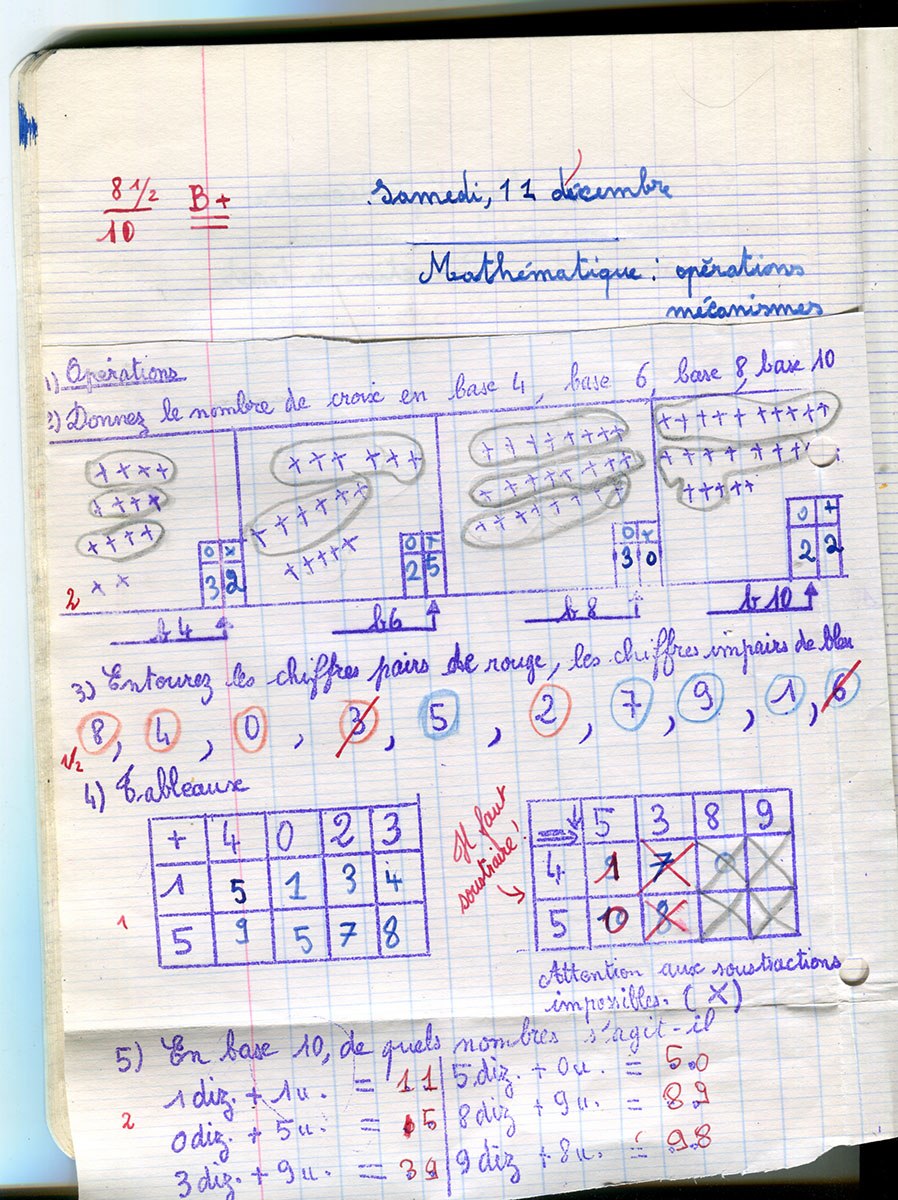 8 1/2
10
B+
Samedi, 11 décembre
Mathématique : opérations
mécanismes
1) Opérations
2) Donnez le nombre de croix en base 4, base 6, base 8, base 10
0 x
3 2
0 +
2 5
0 x
3 0
0 +
2 2
2
b4 b6 b8 b10
3) Entourez les chiffres pairs de rouge, les chiffres impairs de bleu
8, 4, 0, 3, 5, 2, 7, 9, 1, 6
1/2
4) Tableaux
+ 4 0 2 3
1 5 1 3 4
5 9 5 7 8
1
Il faut
soustraire !
5 3 8 9
4 1 7 0
5 0 8
Attention aux soustractions
impossibles. (X)
5) En base 10, de quels nombres s'agit-il
1 diz. + 1u. = 11
0 diz. + 5u. = .5
3 diz. + 9u. = 39
2
5 diz. + 0u. = 5.0
8 diz + 9u. = 8.9
9 diz + 8u. = 9.8